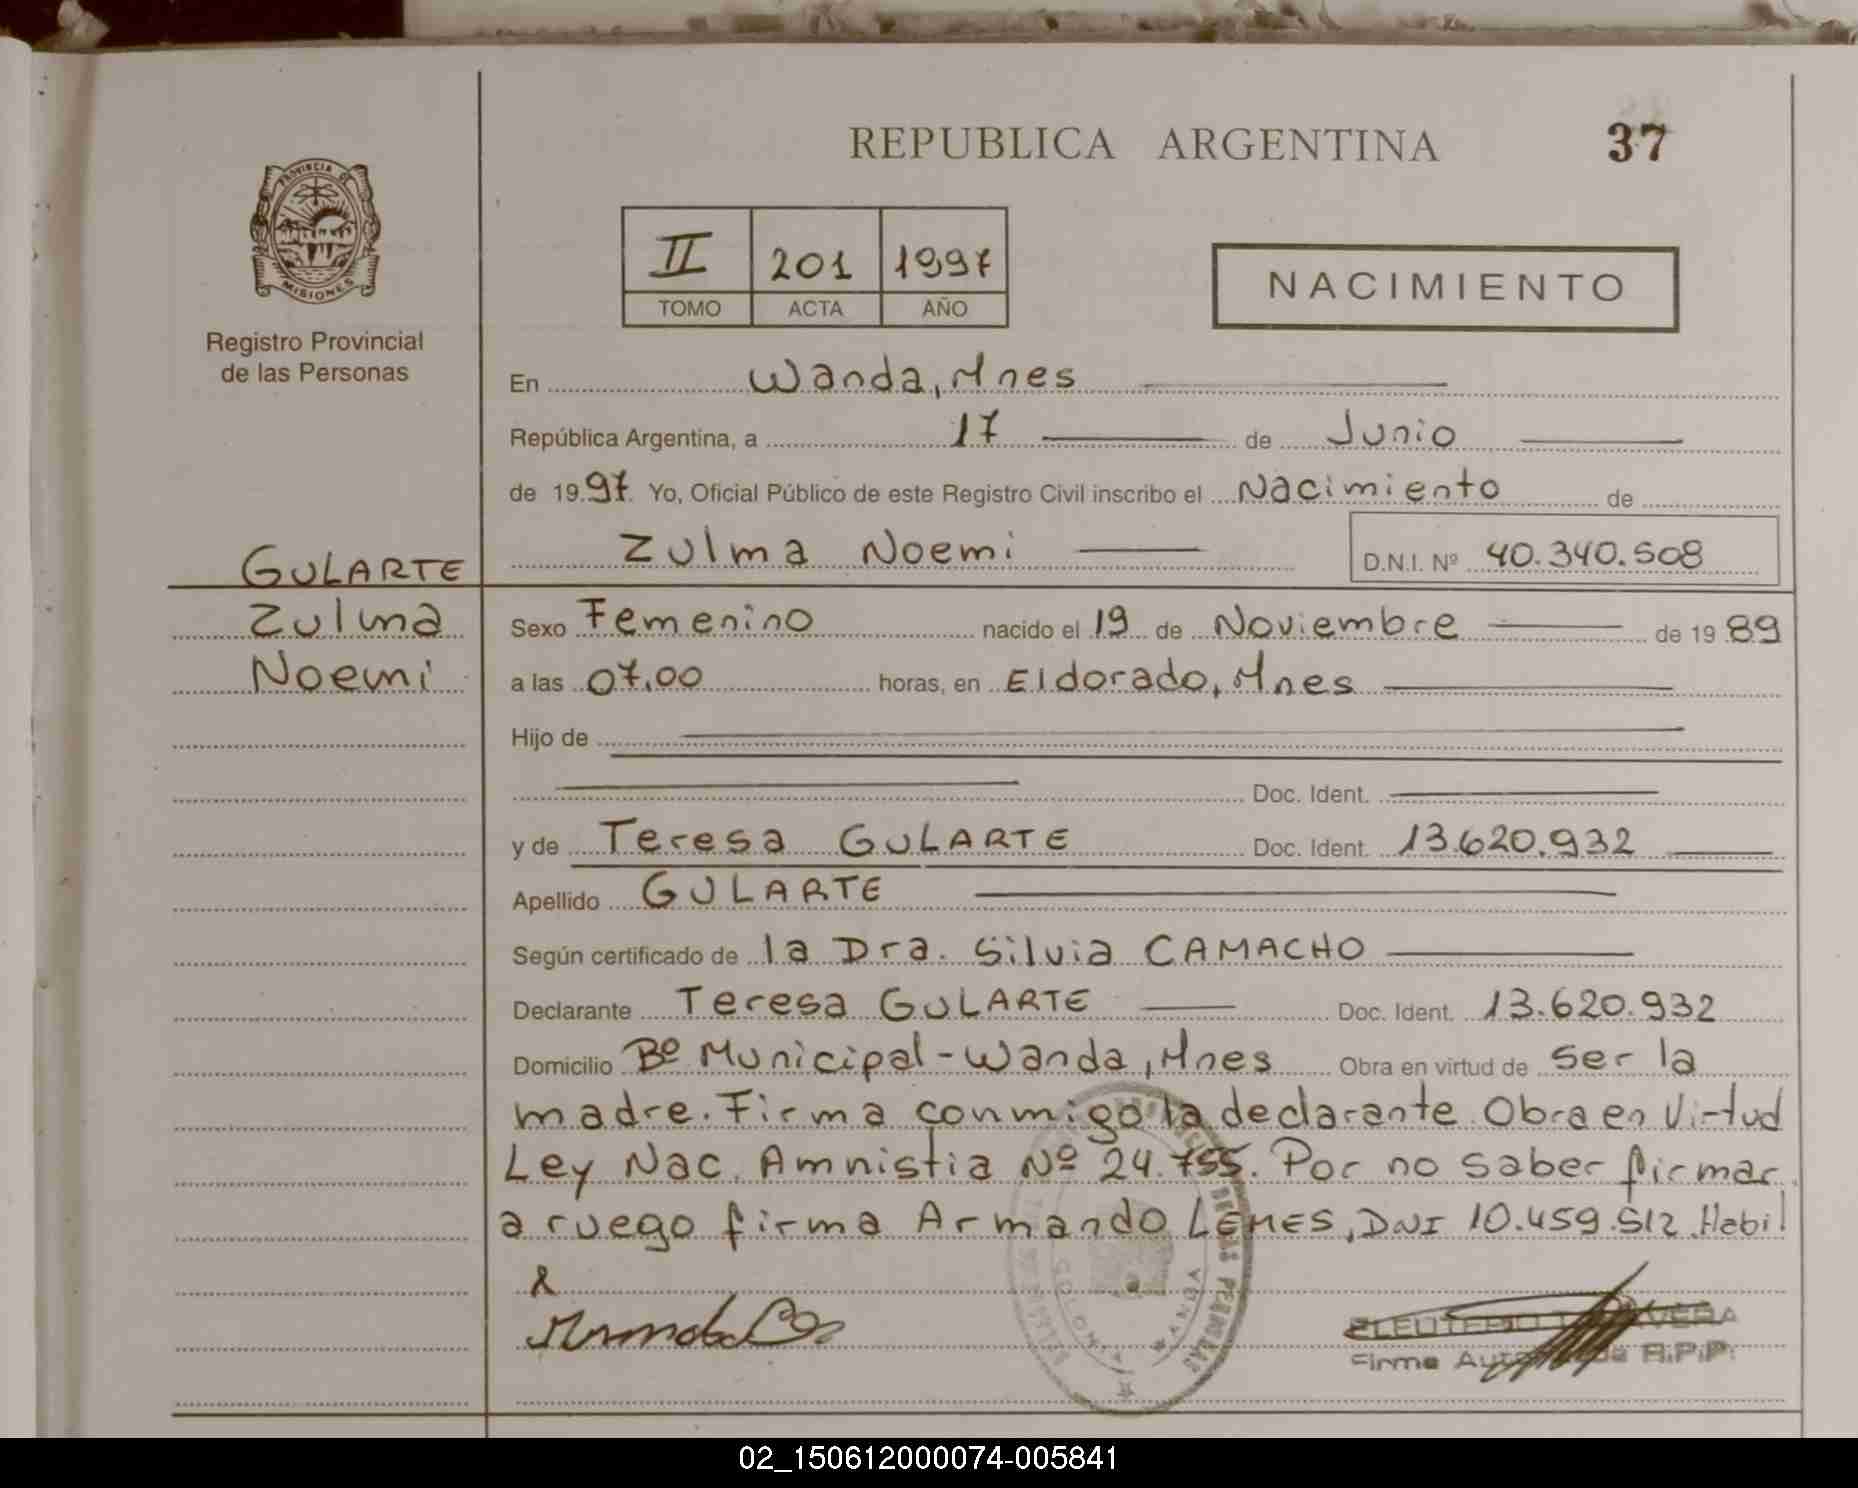 REPUBLICA ARGENTINA
37
PROVINCIA DE
MISIONES
Registro Provincial
de las Personas
II 201 1997
TOMO ACTA AÑO
NACIMIENTO
En Wanda, Mnes
República Argentina, a 17 de Junio
de 1997. Yo, Oficial Público de este Registro Civil inscribo el Nacimiento de
Zulma Noemi D.N.I. Nº 40.340.508
GULARTE
Zulma
Noemi
Sexo Femenino nacido el 19 de Noviembre de 1989
a las 07,00 horas, en Eldorado, Mnes
Hijo de
Doc. Ident.
y de Teresa GULARTE Doc. Ident. 13.620.932
Apellido GULARTE
Según certificado de la Dra. Silvia CAMACHO
Declarante Teresa GULARTE Doc. Ident. 13.620.932
Domicilio Bº Municipal - Wanda, Mnes Obra en virtud de ser la
madre. Firma conmigo la declarante. Obra en Virtud
Ley Nac. Amnistia Nº 24.755. Por no saber firmar
a ruego firma Armando LEMES, DNI 10.459.512. Habil
WANDA
ELEUTERIO
Firma R.P.P.
02_150612000074-005841